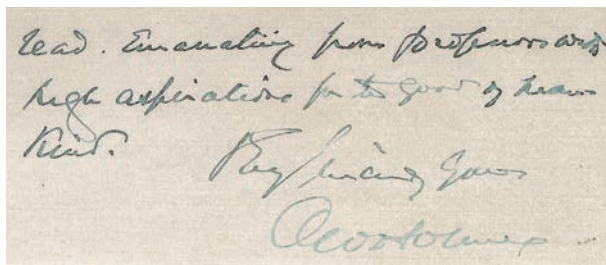 read. Emanating from professors with
high aspirations for the good of human
kind.
Very sincerely yours